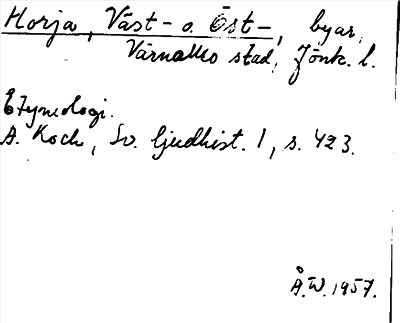 Horja, Väst- o. Öst-, byar,
Värnamo stad, Jönk. l.
Etymologi.
A. Kock, Sv. ljudhist. 1, s. 423.
Å.W. 1957.